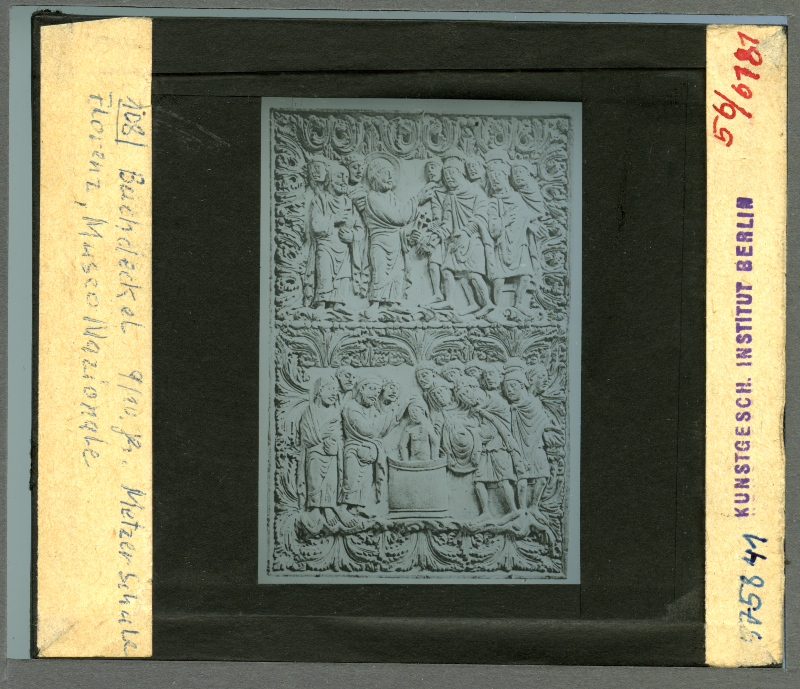 108 | Buchdeckel 9/10. Jh. Metzer Schule
Florenz, Museo Nazionale
56/6181
KUNSTGESCH. INSTITUT BERLIN
575841